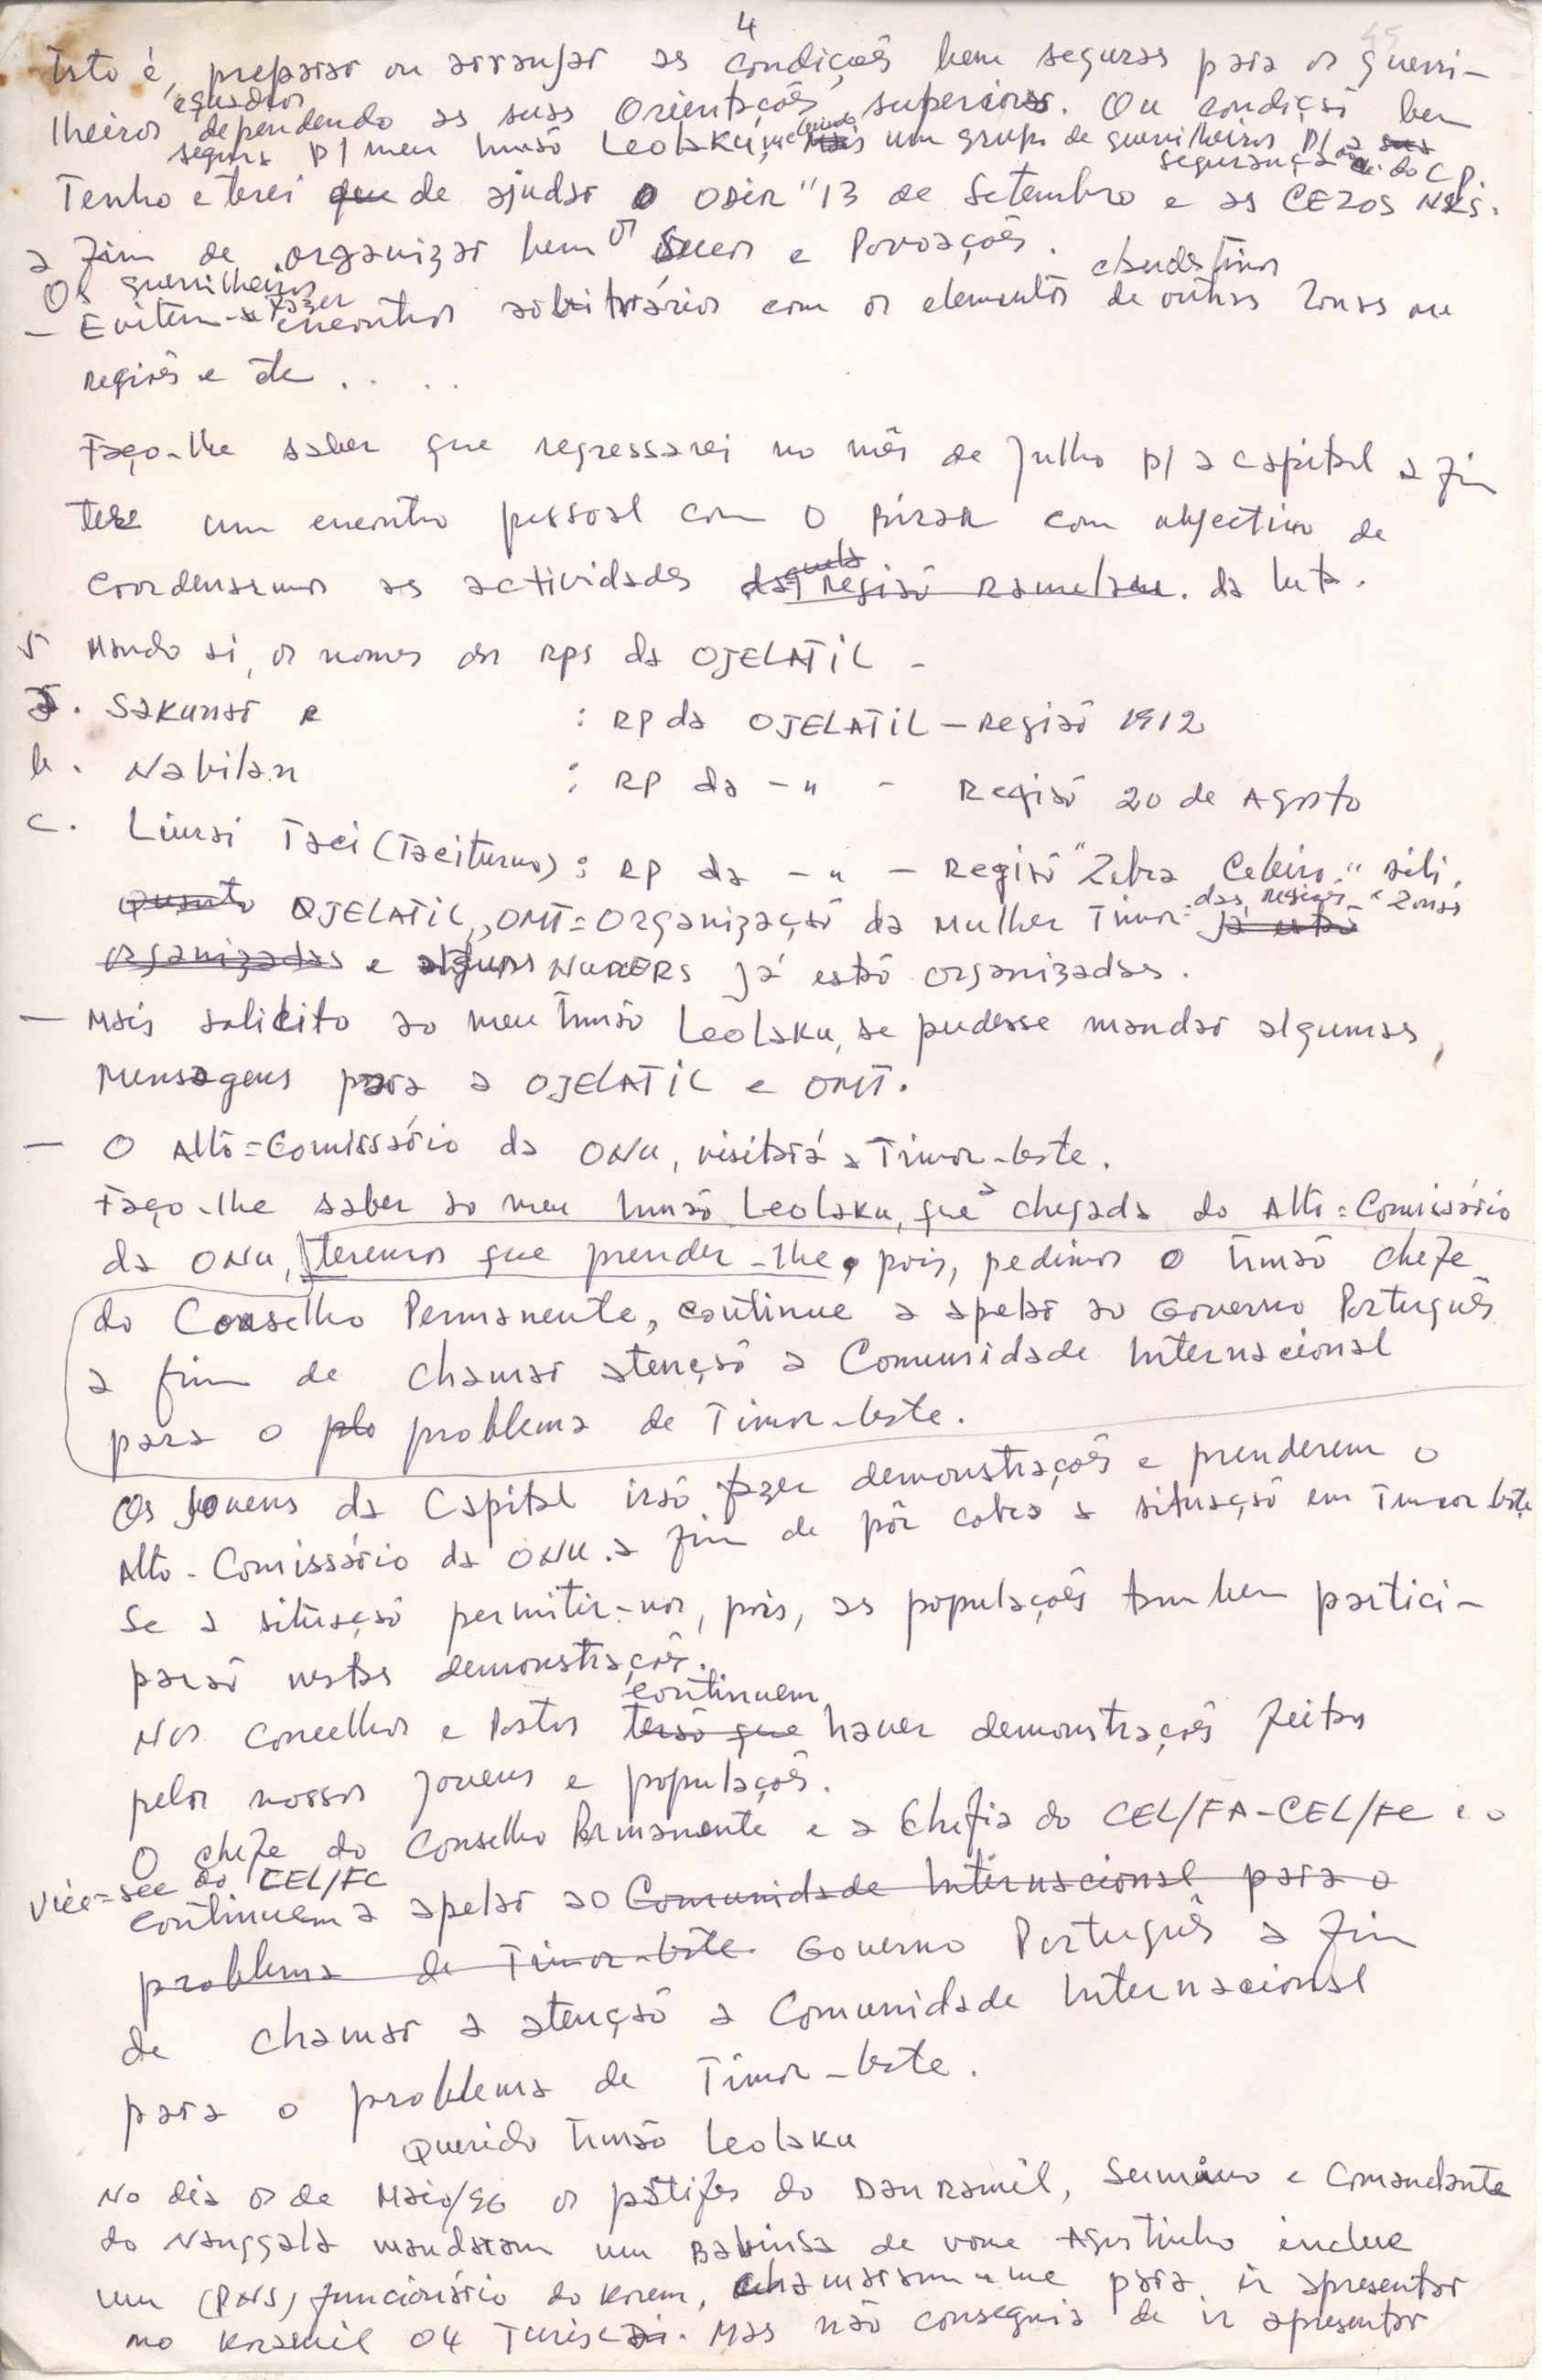 4
Isto é, preparar ou arranjar as condições bem seguras para os guerri-
lheiros dependendo as suas Orientações superiores. Ou condição bem
segura p/ meu Irmão Leolaku, um grupo de guerrilheiros p/ a
segurança do C.P.
Tenho e terei que de ajudar o ODIR "13 de Setembro e as CEZOS NKS.
a fim de organizar bem os Sucos e Povoações.
Os guerrilheiros
clandestinos
- Evitem-se fazer encontros arbitrários com os elementos de outras Zonas ou
regiões e etc. . . .
Faço-lhe saber que regressarei no mês de Julho p/ a capital a fim
ter um encontro pessoal com o com objectivo de
coordenarmos as actividades daquela Região Ramelau. da luta.
5 Mando aí, os nomes dos RPs da OJELATIL -
a. Sakunar R : RP da OJELATIL - Região 1912
b. Nabilan : RP da -"- Região 20 de Agosto
c. Liurai Taci (Taciturno) : RP da -"- Região "Zebra Celeiro" Aili.
Quanto OJELATIL, OMT=Organização da Mulher Timor= das regiões - Zonas já estão
organizadas e alguns NURERs já estão organizadas.
- Mais solicito ao meu Irmão Leolaku, se pudesse mandar algumas
Mensagens para a OJELATIL e OMT.
- O Alto=Comissário da ONU, visitará a Timor-Leste.
Faço-lhe saber ao meu Irmão Leolaku, que a chegada do Alto=Comissário
da ONU, teremos que prender-lhe, pois, pedimos o Irmão Chefe
do Conselho Permanente, continue a apelar ao Governo Português
a fim de chamar atenção a Comunidade Internacional
para o plo problema de Timor-Leste.
Os Jovens da Capital irão fazer demonstrações e prenderem o
Alto-Comissário da ONU. a fim de pôr cobro a situação em Timor Leste
Se a situação permitir-nos, pois, as populações tambem partici-
parão nestas demonstrações.
continuem
Nos Concelhos e Postos terão que haver demonstrações feitas
pelos nossos jovens e populações.
O Chefe do Conselho Permanente e a Chefia do CEL/FA-CEL/FC e o
Vice=sec do CEL/FC
continuem a apelar ao Comunidade Internacional para o
problema de Timor-Leste. Governo Português a fim
de chamar a atenção a Comunidade Internacional
para o problema de Timor-Leste.
Querido Irmão Leolaku
No dia 05 de Maio/96 os patifes do DanRamil, Sumarno e Comandante
do Nanggala mandaram um Babinsa de nome Agostinho inclue
um (PNS) funcionário do Korem, chamaram-me para ir apresentar
no Kramil 04 Turiscai. Mas não conseguia de ir apresentar